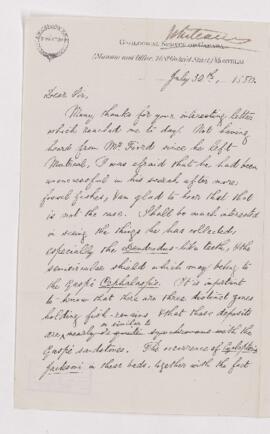 Whiteaves
GEOLOGICAL SURVEY OF CANADA
(Museum and Office, 76 St Gabriel Street) MONTREAL
July 30th, 1880.
Dear Sir,
Many thanks for your interesting letter
which reached me to day. Not having
heard from Mr Foord since he left
Montreal, I was afraid that he had been
unsuccessful in his search after more
fossil fishes, & am glad to hear that that
is not the case. I shall be much interested
in seeing the things he has collected,
especially the Dendrodus-like teeth, & the
semicircular shield which may belong to
the Gaspé Cephalaspis. It is important
to know that there are three distinct zones
holding fish-remains & that these deposits
are nearly synchronous with the
Gaspé sandstones. The occurrence of Cyclopteris
Jacksoni in these beds, together with the fact